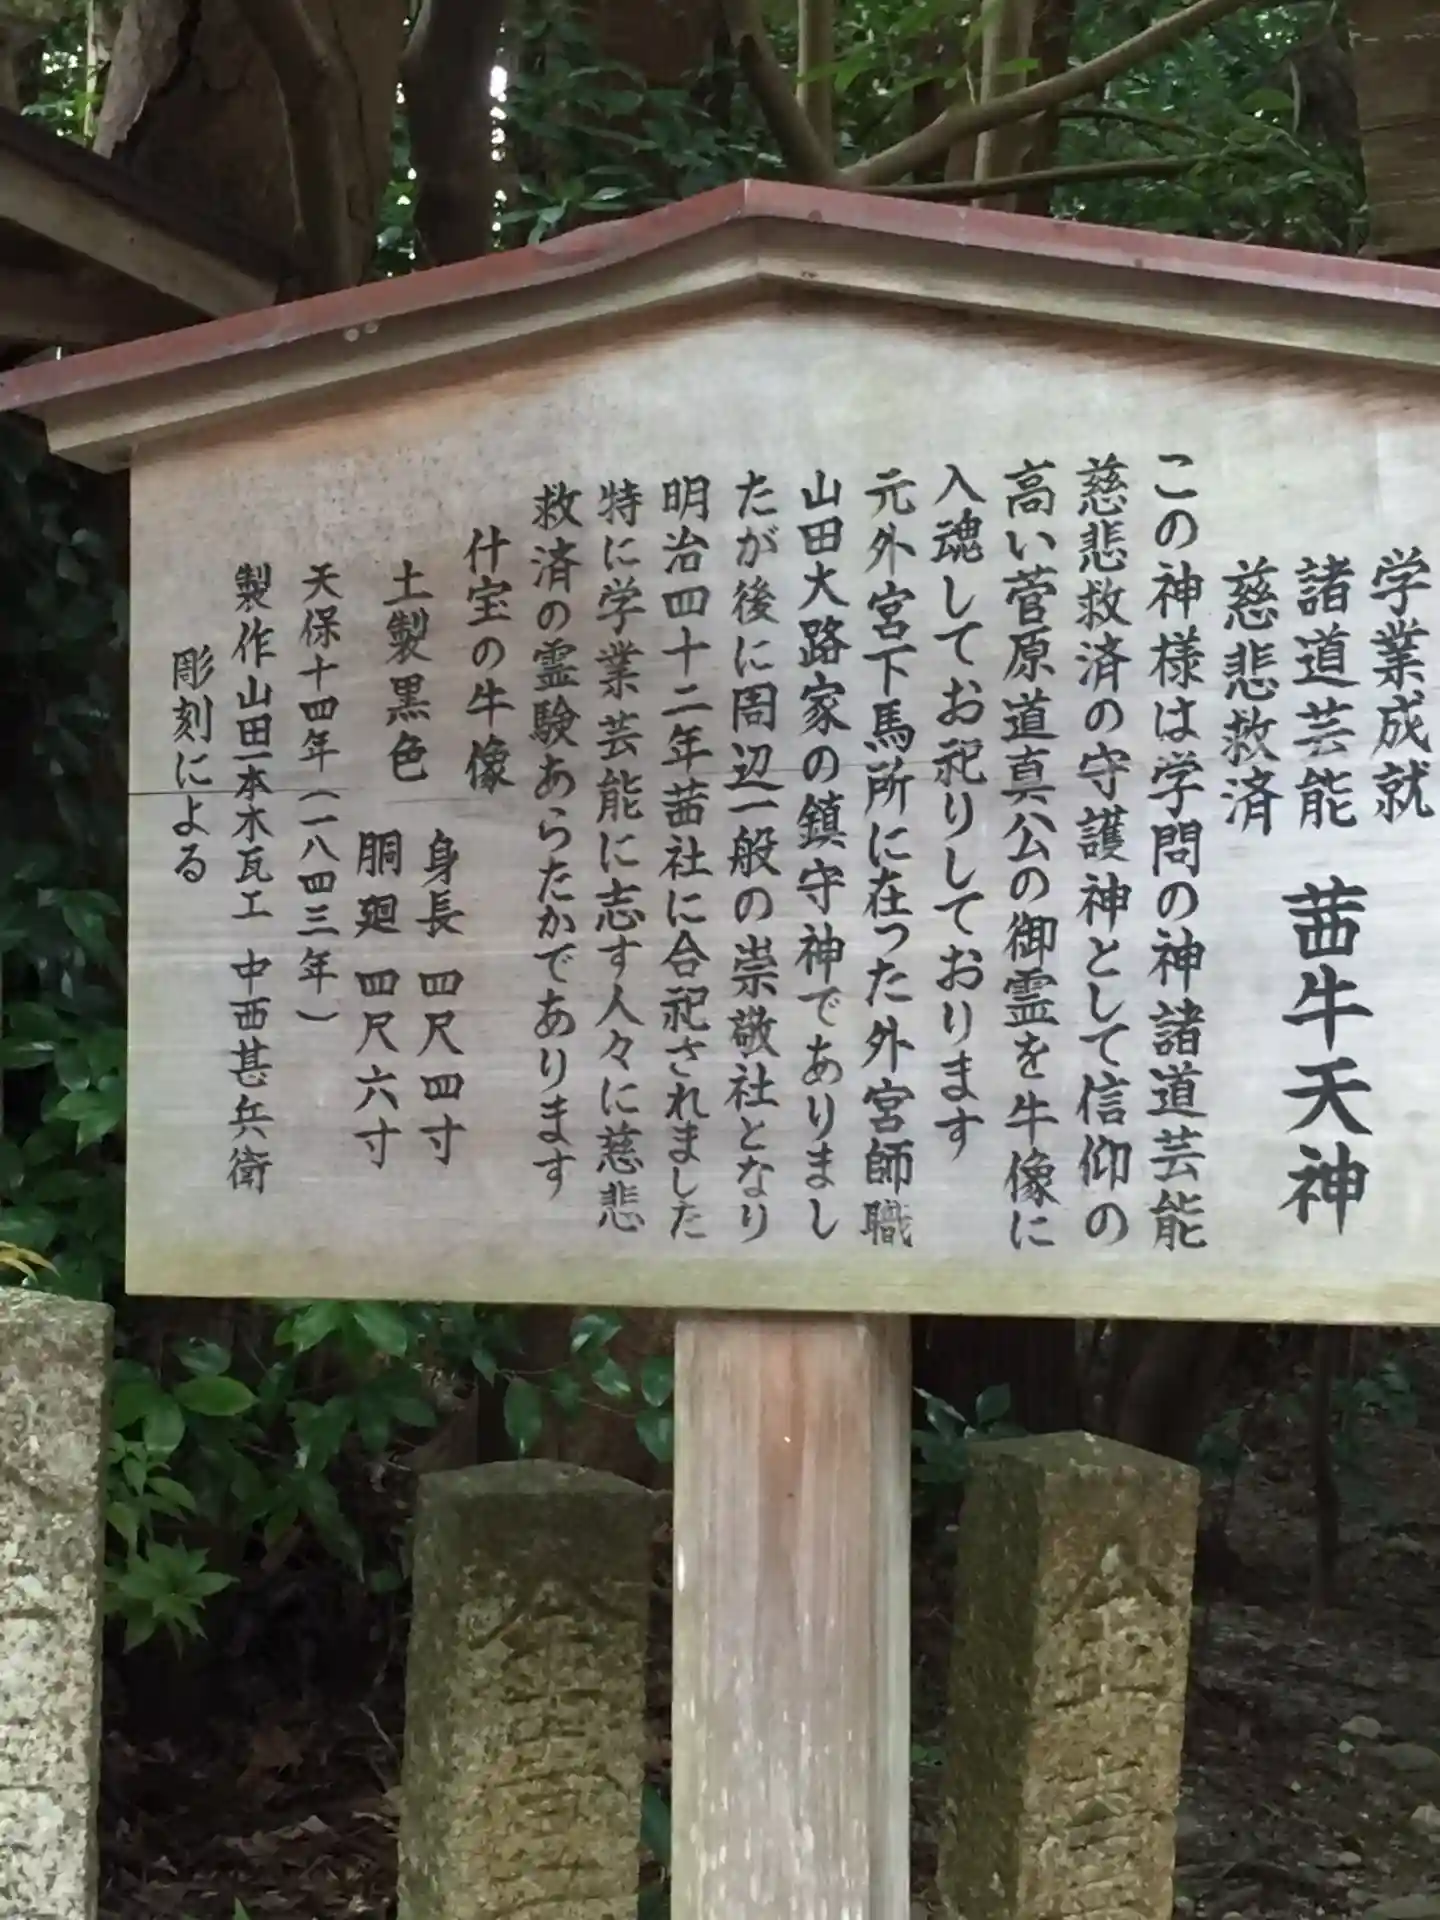 学業成就
諸道芸能
慈悲救済
茜牛天神
この神様は学問の神諸道芸能
慈悲救済の守護神として信仰の
高い菅原道真公の御霊を牛像に
入魂してお祀りしております
元外宮下馬所に在った外宮師職
山田大路家の鎮守神でありまし
たが後に周辺一般の崇敬社となり
明治四十二年茜社に合祀されました
特に学業芸能に志す人々に慈悲
救済の霊験あらたかであります
什宝の牛像
土製黒色
身長 四尺四寸
胴廻 四尺六寸
天保十四年(一八四三年)
製作山田一本木瓦工 中西甚兵衛
彫刻による